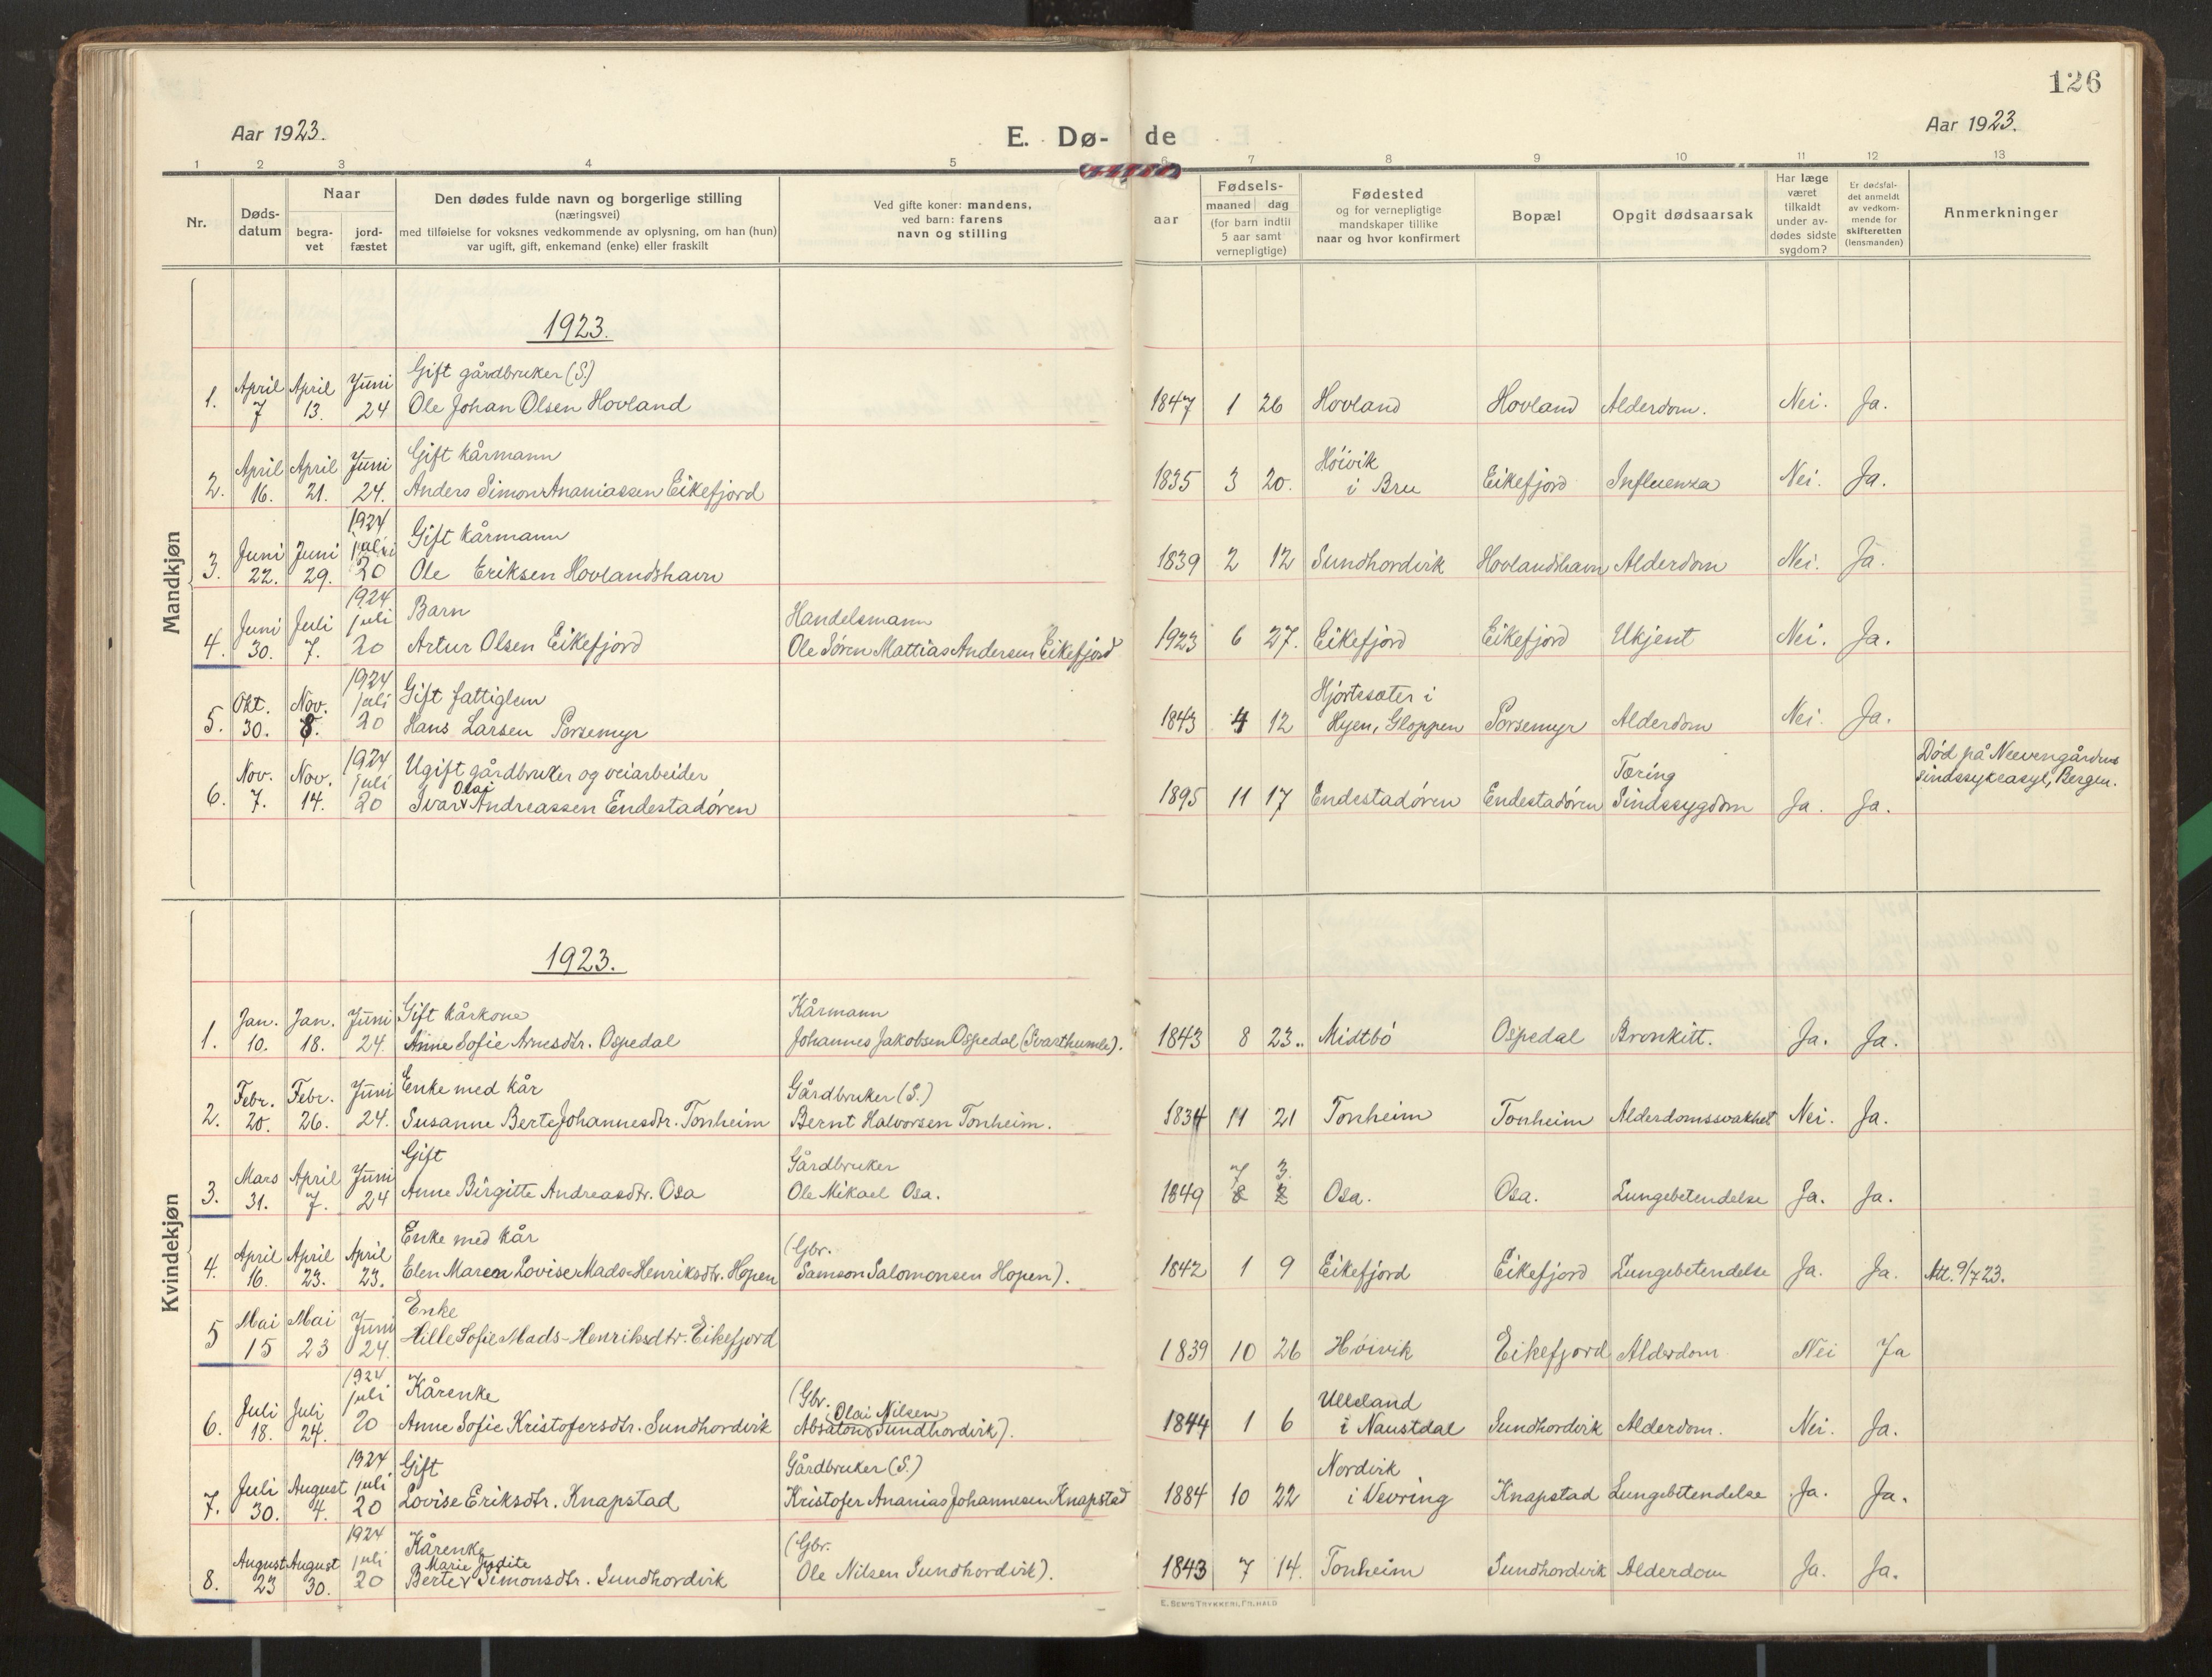 126
Aar 1923.
E. Dø-de
Aar 1923.
1 2 3 4 5 6 7 8 9 10 11 12 13
Nr.
Døds-
datum
Naar
begra-
vet
jord-
fæstet
Den dødes fulde navn og borgerlige stilling
(næringsvei)
med tilføielse for voksnes vedkommende av oplysning, om han (hun)
var ugift, gift, enkemand (enke) eller fraskilt
Ved gifte koner: mandens,
ved barn: farens
navn og stilling
Fødsels-
aar
maaned dag
(for barn indtil
5 aar samt
vernepligtige)
Fødested
og for vernepligtige
mandskaper tillike
naar og hvor konfirmert
Bopæl
Opgit dødsaarsak
Har læge
været
tilkaldt
under av-
dødes sidste
sygdom?
Er dødsfal-
det anmeldt
av vedkom-
mende for
skifteretten
(lensmanden)
Anmerkninger
Mandkjøn
1923.
Gift gårdbruker (S.)
1. April 7 April 13. Juni 24 Ole Johan Olsen Hovland 1847 1 26 Hovland Hovland Alderdom. Nei. Ja.
Gift kårmann Høivik
2. April 16. April 21. Juni 24. Anders Simon Ananiassen Eikefjord 1835 3 20. i Bru Eikefjord Influenza Nei. Ja.
1924
Gift kårmann
3. Juni 22. Juni 29. juli 20 Ole Eriksen Hovlandshavn 1839 2 12 Sundhordvik Hovlandshavn Alderdom Nei. Ja.
1924
Barn Handelsmann
4. Juni 30. Juli 7. juli 20 Artur Olsen Eikefjord Ole Søren Mattias Andersen Eikefjord 1923 6 27. Eikefjord Eikefjord Ukjent Nei. Ja.
1924
Gift fattiglem Hjortesæter i
5. Okt. 30. Nov. 8. juli 20 Hans Larsen Porsemyr 1843 4 12 Hyen, Gloppen Porsemyr Alderdom Nei. Ja.
1924
Ugift gårdbruker og veiarbeider Tæring Død på Neevengårdens
Olai sindssykeasyl, Bergen.
6. Nov. 7. Nov. 14. juli 20 Ivar Andreassen Endestadøren 1895 11 17 Endestadøren Endestadøren Sindssygdom Ja. Ja.
Kvindekjøn
1923.
Gift kårkone Kårmann
1. Jan. 10. Jan. 18. Juni 24. Anne Sofie Arnesdtr. Ospedal Johannes Jakobsen Ospedal (Svarthumle). 1843 8 23. Midtbö Ospedal Bronkitt. Ja. Ja.
Enke med kår Gårdbruker (S.)
2. Febr. 20. Febr. 26. Juni 24. Susanne Berte Johannesdtr. Tonheim Bernt Halvorsen Tonheim. 1834 11 21 Tonheim Tonheim Alderdomssvakhet Nei. Ja.
Gift Gårdbruker 7 3.
3. Mars 31. April 7. Juni 24 Anne Birgitte Andreasdtr. Osa Ole Mikael Osa. 1849 8 2 Osa. Osa. Lungebetendelse Ja. Ja.
Enke med kår (Gbr.
4. April 16. April 23. April 23. Elen Maren Lovise Mads-Henriksdtr. Hopen Samson Salomonsen Hopen). 1842 1 9 Eikefjord Eikefjord Lungebetendelse Ja. Ja. Att. 9/7 23.
Enke
5 Mai 15 Mai 23 Juni 24. Hille Sofie Mads-Henriksdtr. Eikefjord 1839 10 26 Høivik Eikefjord Alderdom Nei Ja
1924
Kårenke (Gbr. Olai Nilsen Ulleland
6. Juli 18. Juli 24. juli 20 Anne Sofie Kristofersdtr. Sundhordvik Absalon Sundhordvik). 1844 1 6 i Naustdal Sundhordvik Alderdom. Nei. Ja.
1924
Gift Gårdbruker (S.) Nordvik
7. Juli 30. August 4. juli 20 Lovise Eriksdtr. Knapstad Kristofer Ananias Johannesen Knapstad 1884 10 22 i Vevring Knapstad Lungebetendelse Ja. Ja.
1924
Kårenke (Gbr.
Marie Judite
8. August 23 August 30. juli 20 Berte Simonsdtr. Sundhordvik Ole Nilsen Sundhordvik). 1843 7 14. Tonheim Sundhordvik Alderdom Ja. Ja.
E. SEM'S TRYKKERI, FR.HALD